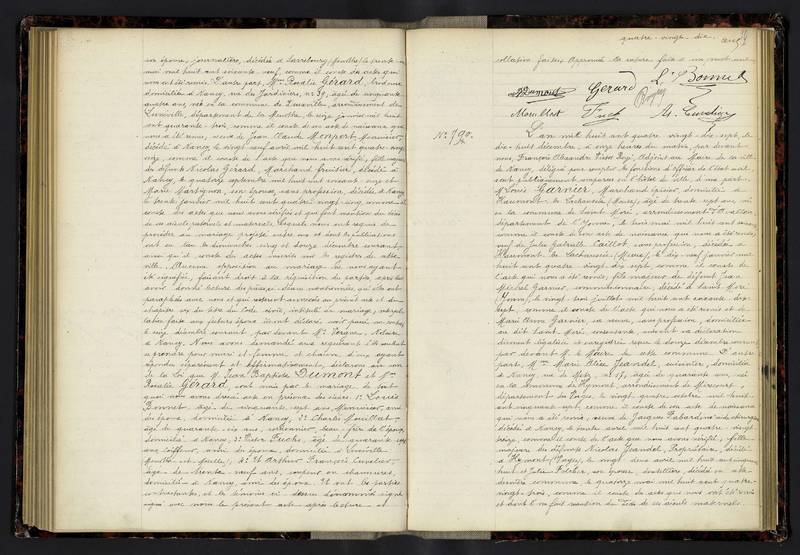 son épouse, journalière, décédée à Sarrebourg (Meurthe) le trente
mai mil huit cent soixante neuf, comme il conste des actes qui
nous ont été remis. D'autre part, Mme Rosalie Gérard, brodeuse
domiciliée à Nancy, rue des Jardiniers, no 39, âgée de cinquante
quatre ans, née en la commune de Lunéville, arrondissement de
Lunéville, département de la Meurthe, le seize janvier mil huit
cent quarante trois, comme il conste de son acte de naissance qui
nous a été remis, veuve de Jean Claude Monpert, Menuisier,
décédé à Nancy le vingt neuf avril mil huit cent quatre-vingt
seize, comme il conste de l'acte que nous avons vérifié, fille majeure
de défunts Nicolas Gérard, Marchand fruitier, décédé à
Nancy, le quatorze septembre mil huit cent soixante onze et
Marie Martignon, son épouse, sans profession, décédée à Nancy
le trente janvier mil huit cent quatre vingt-cinq, comme il
conste des actes que nous avons vérifiés et qui font mention du décès
de ses aïeuls paternels et maternels. Lesquels nous ont requis de
procéder au mariage projeté entre eux et dont les publications
ont eu lieu les dimanches cinq et douze décembre courant,
ainsi qu'il conste des actes inscrits sur les registres de cette
ville. Aucune opposition au mariage ne nous ayant
été signifiée, faisant droit à la réquisition des parties, après leur
avoir donné lecture des pièces ci-dessus mentionnées, qu'elles ont
paraphées avec nous et qui resteront annexées au présent acte et du
chapitre six du titre du Code civil, intitulé du mariage, interpel
lation faite aux futurs époux ils ont déclaré avoir passé un contrat
le onze décembre courant, par devant Me Vergne, Notaire
à Nancy. Nous avons demandé aux requérants s'ils veulent
se prendre pour mari et femme et chacun d'eux ayant
répondu séparément et affirmativement, déclarons au nom
de la Loi que M. Jean Baptiste Dumont et Mme
Rosalie Gérard, sont unis par le mariage. De tout
quoi nous avons dressé acte en présence des sieurs 1o Louis
Bonnet, âgé de cinquante sept ans, Menuisier, ami
des époux, domicilié à Nancy, 2o Charles Mouillet
âgé de quarante six ans, cordonnier, beau-frère de l'épouse,
domicilié à Nancy, 3o Fuchs, âgé de quarante
ans, coiffeur, ami des époux, domicilié à Lunéville
(Meurthe-et-Moselle), 4o et Arthur François Cuvelier,
âgé de trente neuf ans, coupeur en chaussures,
domicilié à Nancy, ami des époux. Et ont les parties
contractantes, et les témoins ci dessus dénommés signé
avec nous le présent acte après lecture et
quatre-vingt-dix
collation faites. Approuvé la rature faite d'un mot nul.
Dumont Gérard L. Bonnet
Mouillet Fuchs A. Cuvelier
No 790.
L'an mil huit cent quatre-vingt-dix-sept, le
dix-huit décembre, à onze heures du matin, par devant
nous, François Alexandre Adjoint au Maire de la ville
de Nancy, délégué pour remplir les fonctions d'officier de l'état civil
sont publiquement comparus en l'hôtel de ville, d'une part,
M. Louis Garnier, Marchand épicier, domicilié à
Haumont-lès-Lachaussée (Meuse), âgé de trente sept ans, né
en la commune de Saint-Moré, arrondissement d'Avallon
département de l'Yonne, le huit mai mil huit cent soixante
comme il conste de son acte de naissance qui nous a été remis,
veuf de Julie Gabrielle Caillot, sans profession, décédée à
Haumont-lès-Lachaussée (Meuse), le dix-neuf janvier mil
huit cent quatre-vingt-dix-sept, comme il conste de
l'acte qui nous a été remis, fils majeur de défunt Jean
Michel Garnier, commissionnaire, décédé à Saint Moré
(Yonne), le vingt-trois juillet mil huit cent soixante dix
sept, comme il conste de l'acte qui nous a été remis et de
Marie Anne Garnier, sa veuve, sans profession, domiciliée
au dit Saint-Moré, consentante, suivant sa déclaration
dûment légalisée et enregistrée reçue le douze décembre courant
par devant M. le Maire de cette commune. D'autre
part, Mme Marie Elise Jeandel, cuisinière, domiciliée
à Nancy, rue de Metz, no 17, âgée de quarante ans, née
en la commune de Hymont, arrondissement de Mirecourt,
département des Vosges, le vingt-quatre août mil huit
cent cinquante sept, comme il conste de son acte de naissance
qui nous a été remis, veuve de Jacques
décédé à Nancy, le trente avril mil huit cent quatre-vingt
treize, comme il conste de l'acte que nous avons vérifié, fille
majeure de défunts Nicolas Jeandel, Propriétaire, décédé
à Hymont (Vosges), le vingt deux avril mil huit cent
huit et Julie son épouse, dentellière, décédée en cette
dernière commune, le quatorze mai mil huit cent quatre-
vingt-trois, comme il conste des actes qui nous ont été remis
et dont l'un fait mention du décès de ses aïeuls maternels.